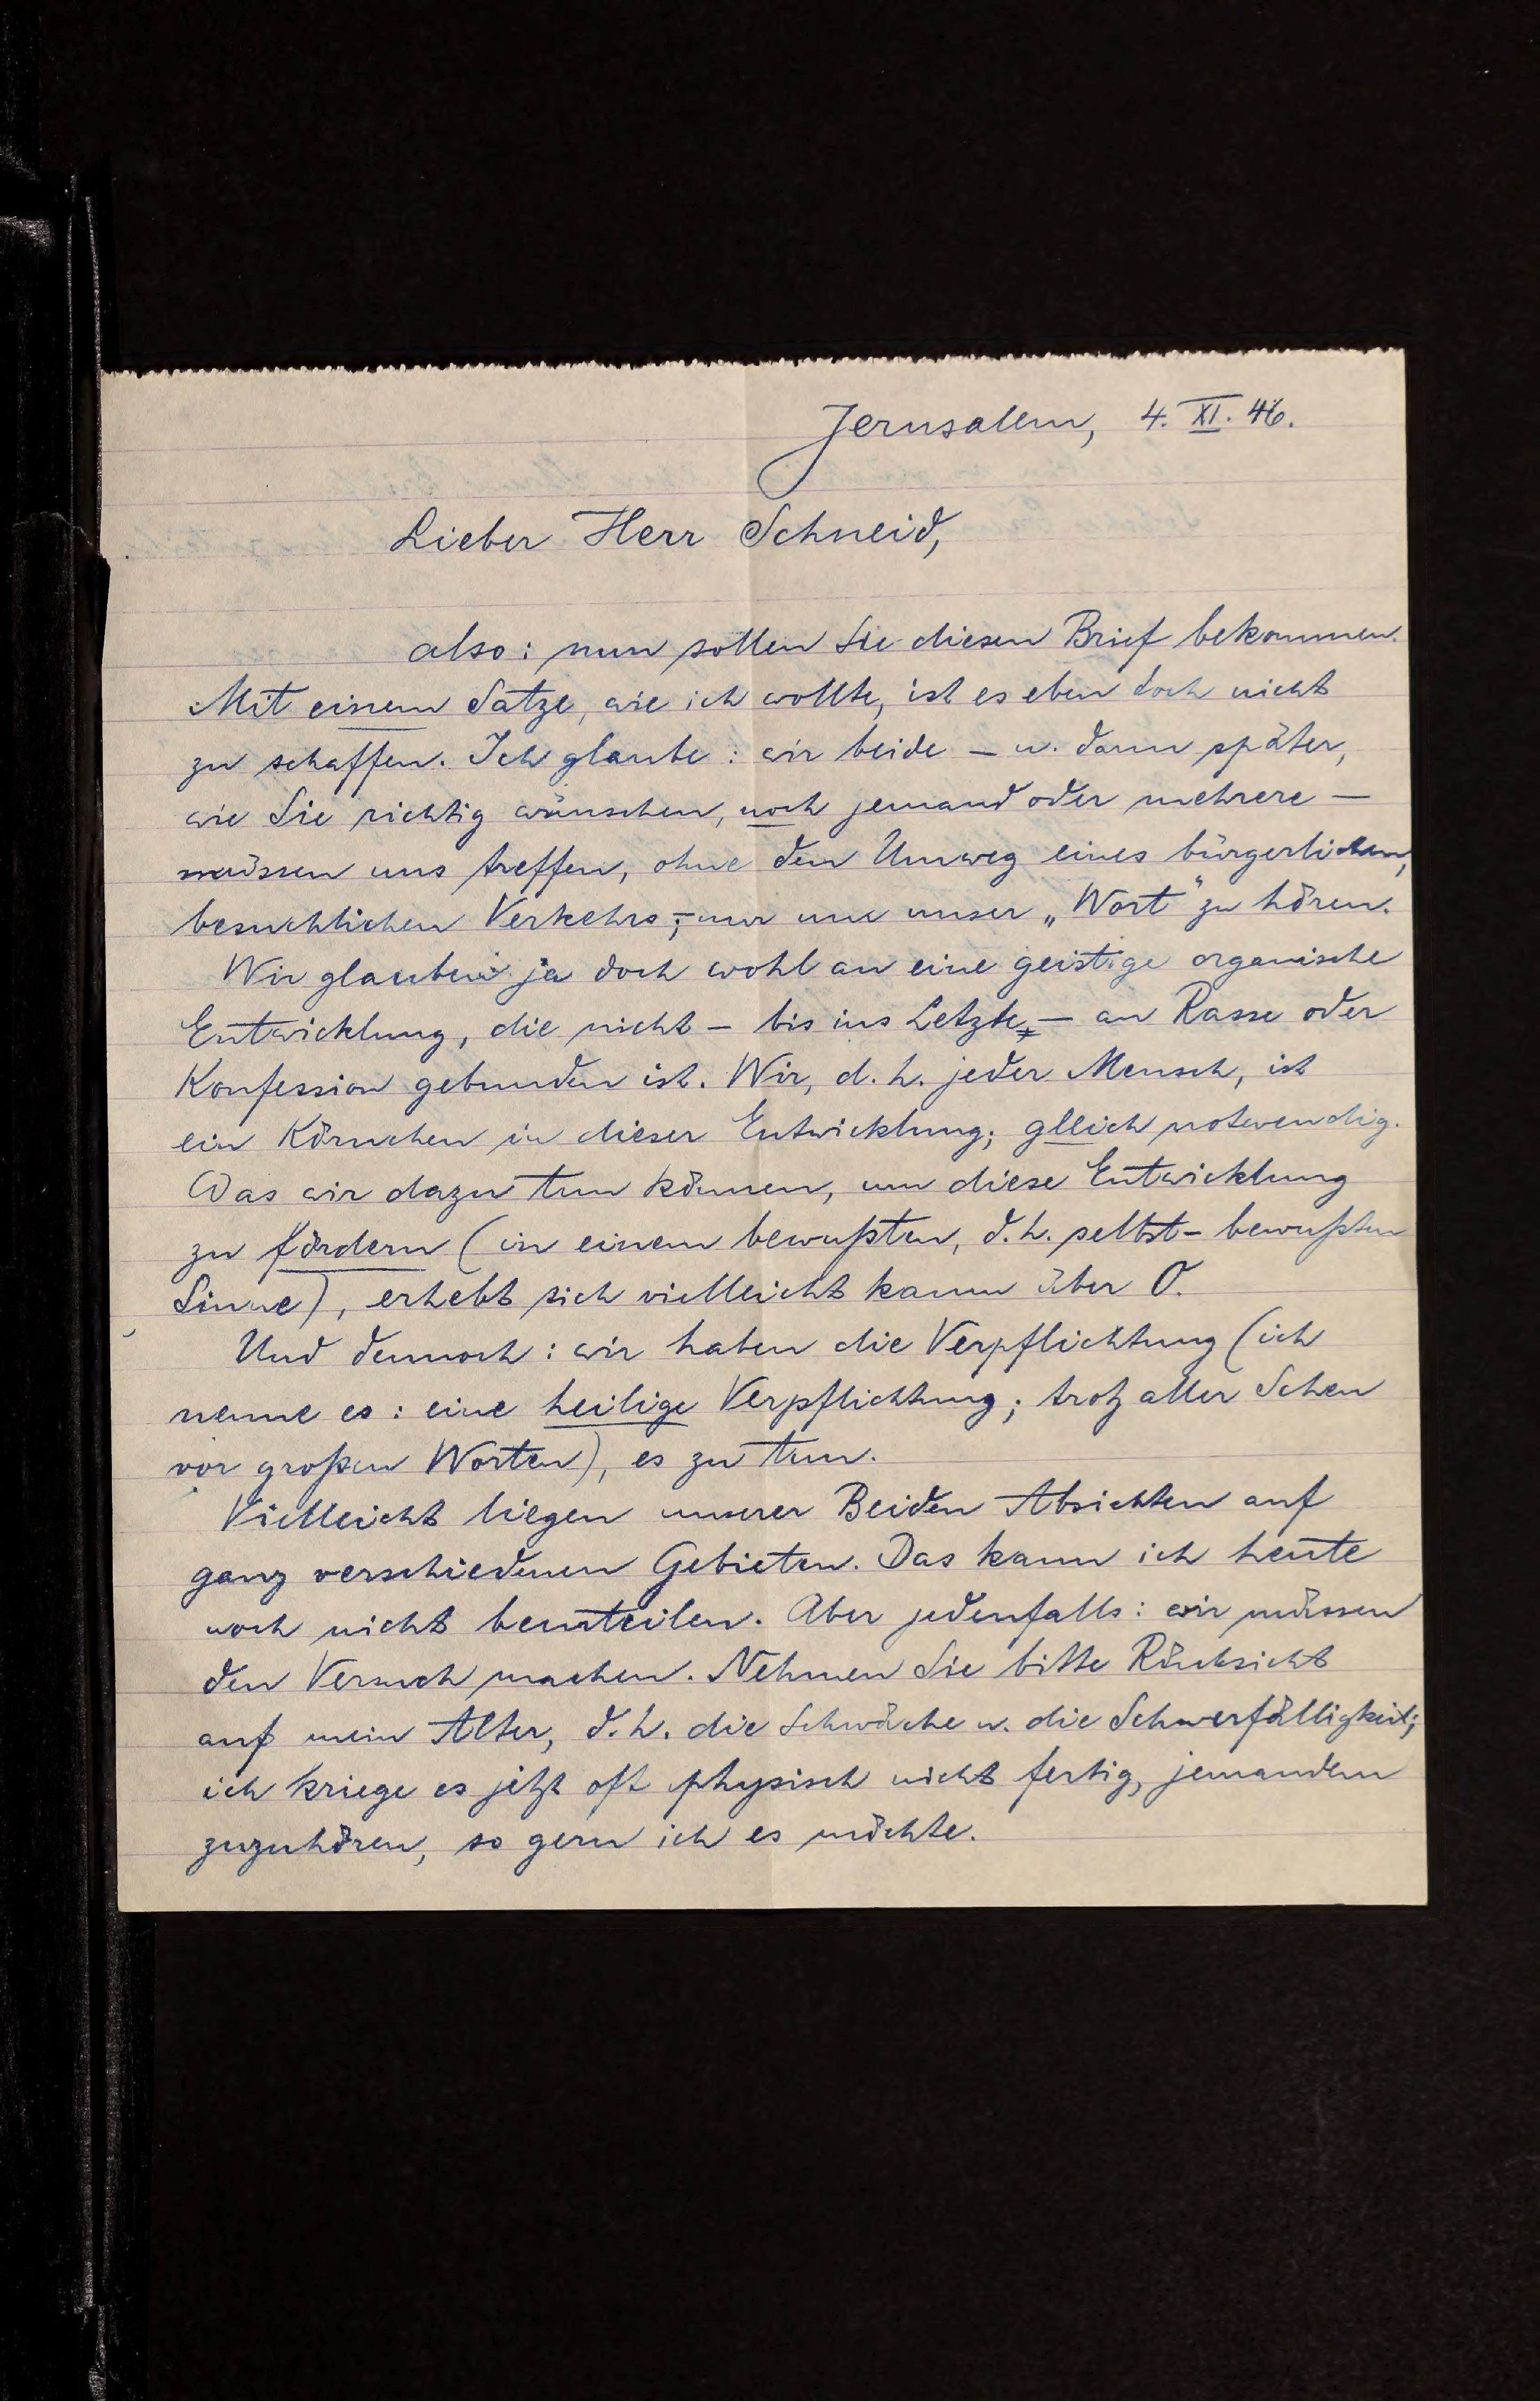 Jerusalem, 4. XI. 46.
Lieber Herr Schneid,
also: nun sollen Sie diesen Brief bekommen.
Mit einem Satze, wie ich wollte, ist es eben doch nicht
zu schaffen. Ich glaube: wir beide – u. dann später,
wie Sie richtig wünschen, noch jemand oder mehrere –
müssen uns treffen, ohne den Umweg eines bürgerlichen,
besuchlichen Verkehrs, – nur um unser „Wort" zu hören.
Wir glauben ja doch wohl an eine geistige organische
Entwicklung, die nicht – bis ins Letzte – an Rasse oder
Konfession gebunden ist. Wir, d.h. jeder Mensch, ist
ein Körnchen in dieser Entwicklung; gleich notwendig.
Was wir dazu tun können, um diese Entwicklung
zu fördern (in einem bewußten, d.h. selbst-bewußten
Sinne), erhebt sich vielleicht kaum über 0.
Und dennoch: wir haben die Verpflichtung (ich
nenne es: eine heilige Verpflichtung; trotz aller Scheu
vor großen Worten), es zu tun.
Vielleicht liegen unserer Beiden Absichten auf
ganz verschiedenen Gebieten. Das kann ich heute
noch nicht beurteilen. Aber jedenfalls: wir müssen
den Versuch machen. Nehmen Sie bitte Rücksicht
auf mein Alter, d.h. die Schwäche u. die Schwerfälligkeit;
ich kriege es jetzt oft physisch nicht fertig, jemandem
zuzuhören, so gern ich es möchte.